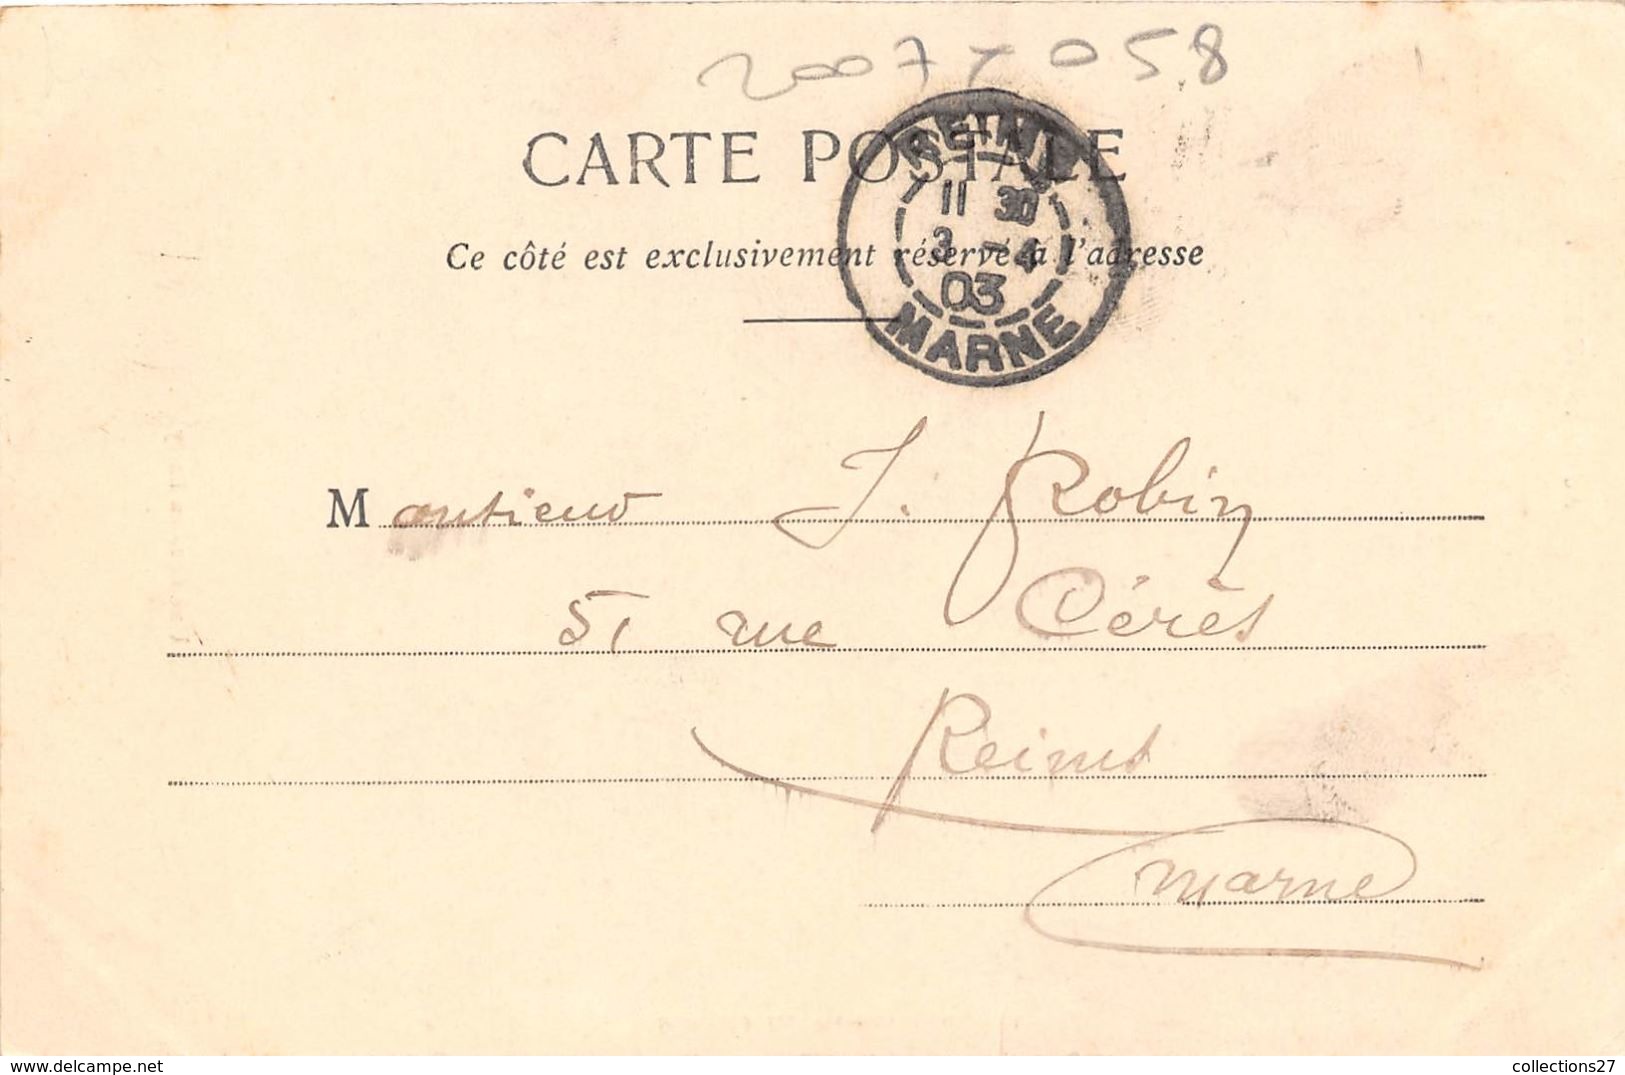 2007 - 058
CARTE POSTALE
REIMS
11 30
3 - 4
03
MARNE
Ce côté est exclusivement réservé à l'adresse
Monsieur J. Robin
51 rue Cérès
Reims
Marne
collections27